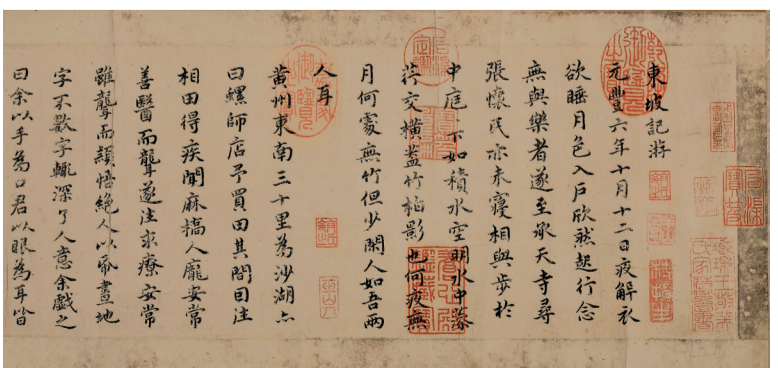 東坡記游
元豐六年十月十二日夜解衣
欲睡月色入戶欣然起行念
無與樂者遂至承天寺尋
張懷民亦未寢相與步於
中庭下如積水空明水中藻
荇交橫蓋竹柏影也何夜無
月何處無竹但少閑人如吾兩
人耳
黃州東南三十里為沙湖亦
曰螺師店予買田其間因往
相田得疾聞麻橋人龐安常
善醫而聾遂往求療安常
雖聾而穎悟絕人以紙畫地
字不數字輒深了人意余戲之
曰余以手為口君以眼為耳皆